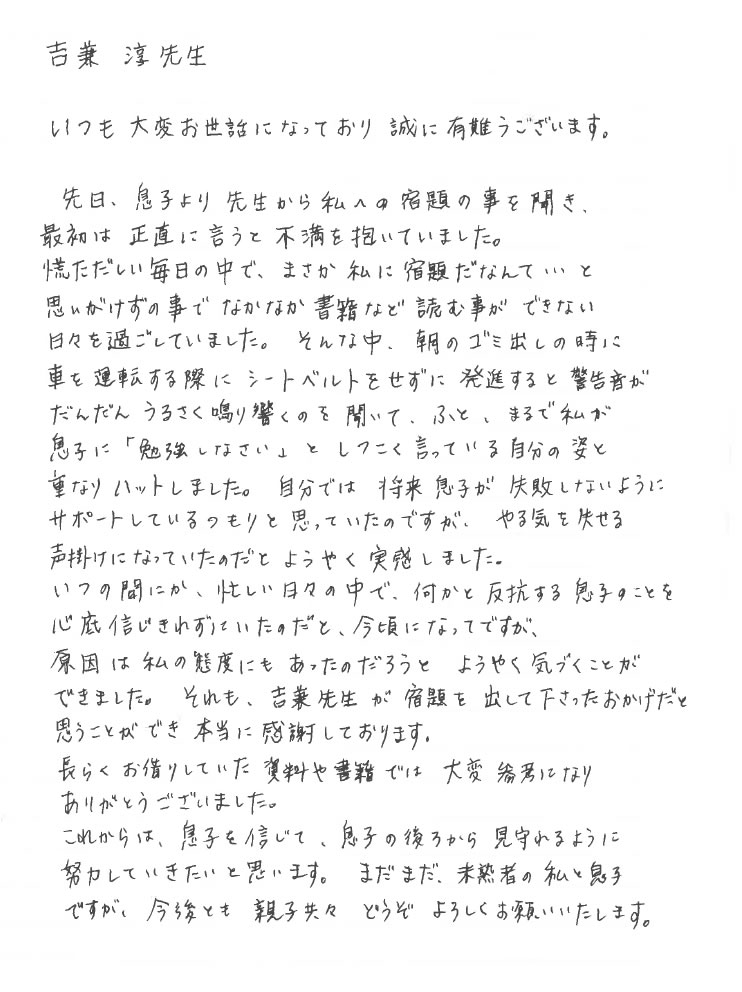 吉兼 淳先生
いつも 大変お世話になっており 誠に 有難うございます。
先日、息子より 先生から私への 宿題の 事を 聞き、
最初は 正直に 言うと 不満を 抱いていました。
慌ただしい 毎日の 中で、まさか 私に 宿題だなんて… と
思いがけずの 事で なかなか 書籍など 読む事が できない
日々を 過ごしていました。 そんな中、朝の ゴミ出しの 時に
車を 運転する際に シートベルトをせずに 発進すると 警告音が
だんだん うるさく 鳴り響くのを 聞いて、ふと、まるで 私が
息子に 「勉強しなさい」と しつこく 言っている 自分の 姿と
重なり ハットしました。 自分では 将来 息子が 失敗しないように
サポートしているつもりと 思っていたのですが、 やる気を 失せる
声掛けになっていたのだと ようやく 実感しました。
いつの間にか、忙しい 日々の 中で、何かと 反抗する 息子のことを
心底 信じきれずにいたのだと、今頃になってですが、
原因は 私の 態度にも あったのだろうと ようやく 気づくことが
できました。 それも、吉兼先生が 宿題を 出して下さったおかげだと
思うことができ 本当に 感謝しております。
長らく お借りしていた 資料や 書籍では 大変 参考になり
ありがとうございました。
これからは、息子を 信じて、息子の後ろから 見守れるように
努力していきたいと 思います。 まだまだ、未熟者の 私と 息子
ですが、今後とも 親子共々 どうぞ よろしくお願いいたします。